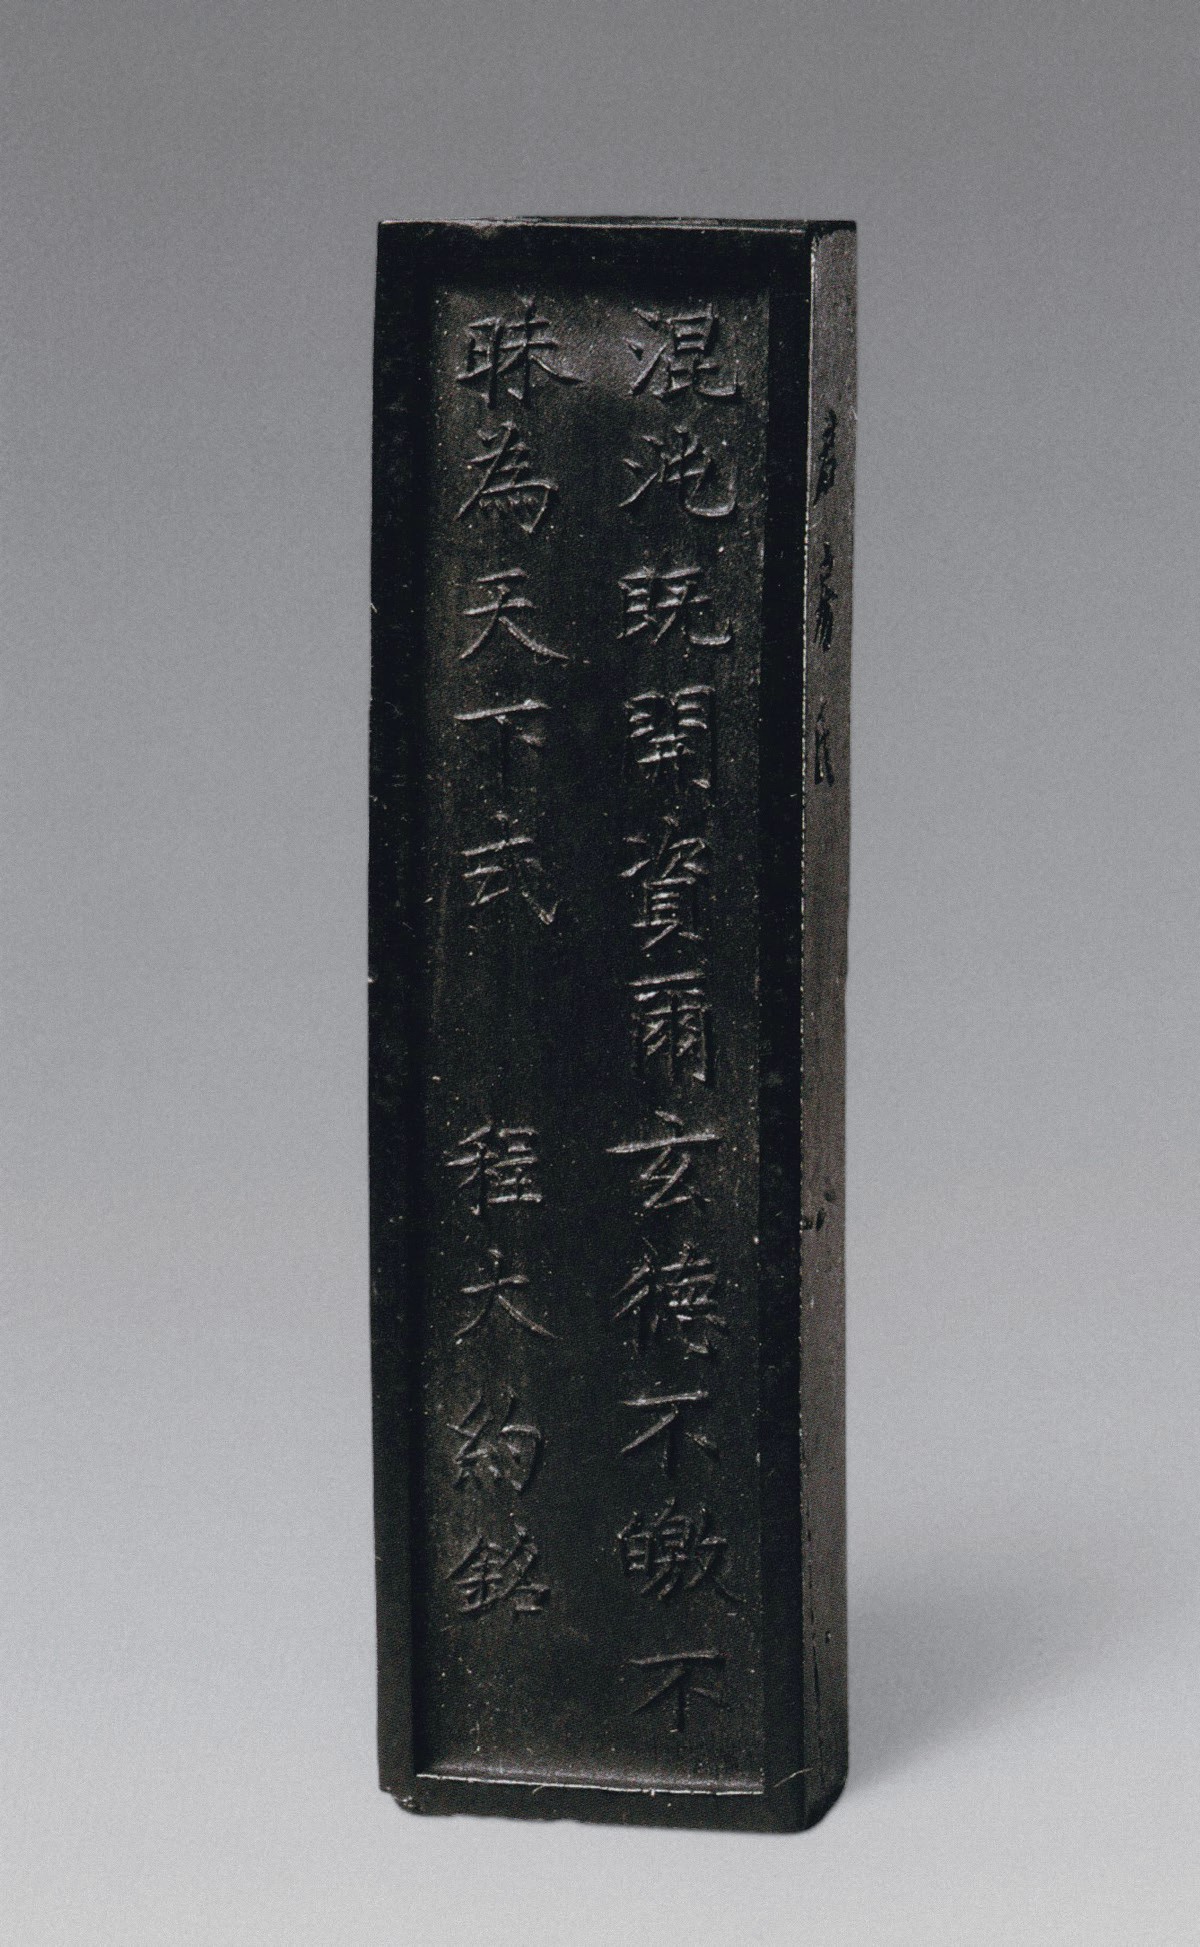 混沌既開資爾玄德不皦不
昧為天下式 程大約銘